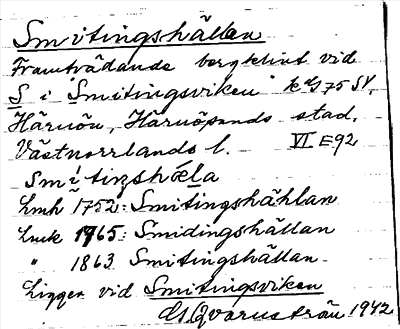 Smitingshällan
Framträdande bergklint vid
S i Smitingsviken
Härnön, Härnösands stad,
Västnorrlands l. VI E92
Smítiŋshæla
Lmh 1752: Smitingshählan
Luck 1765: Smidingshällan
" 1863 Smitingshällan
Ligger vid Smitingsviken
Qvarnström 1942